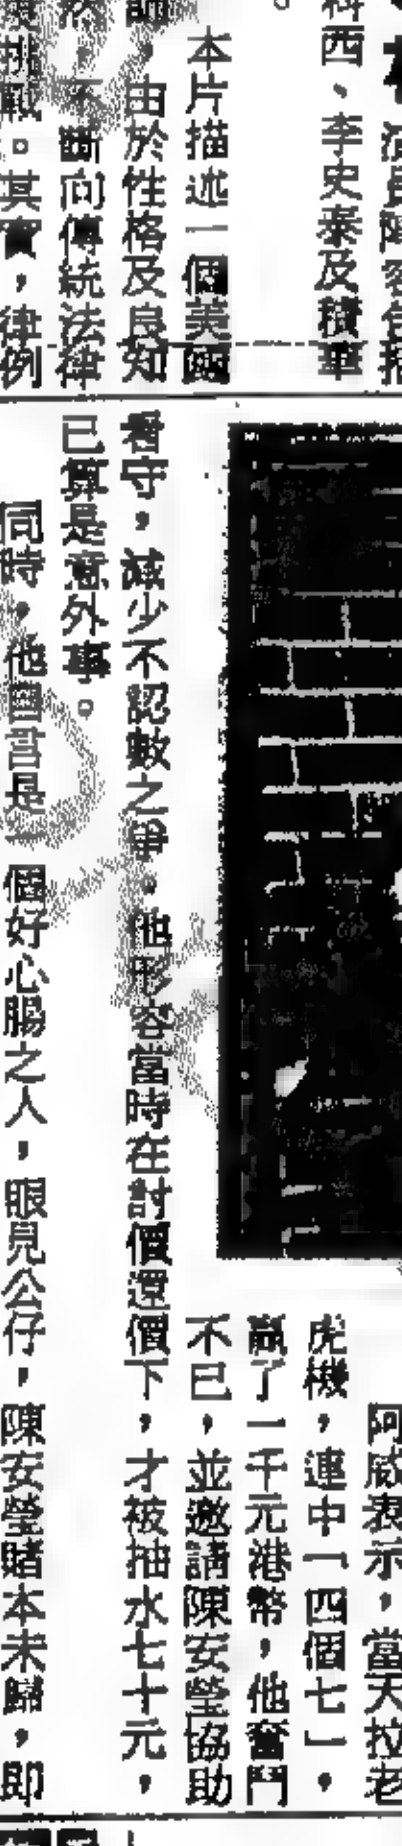 科西、李史泰及積軍
。
本片描述一個美國
師，由於性格及良知
然，不斷向傳統法律
挑戰。其實，律例
阿威表示，當天拉老
虎機，連中「四個七」，
贏了一千元港幣，他奮鬥
不已，並邀請陳安瑩協助
看守，減少不認數之爭。他形容當時在討價還價下，才被抽水七十元，
已算是意外事。
同時，他自言是一個好心腸之人，眼見公仔，陳安瑩賭本未歸，即